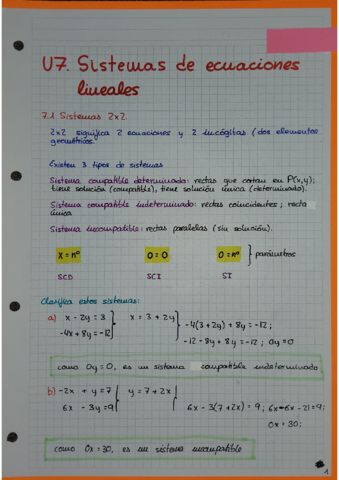 U7. Sistemas de ecuaciones
lineales
7.1. Sistemas 2x2.
2x2 significa 2 ecuaciones y 2 incógitas (dos elementos
geométricos.)
Existen 3 tipos de sistemas
Sistema compatible determinado: rectas que cortan en P(x,y);
tiene solución (compatible), tiene solución única (determinado).
Sistema compatible indeterminado: rectas coincidentes; recta
única
Sistema incompatible: rectas paralelas (sin solución).
x = nº 0 = 0 0 = nº } parámetros
SCD SCI SI
Clasifica estos sistemas:
a) x - 2y = 3 x = 3 + 2y
-4x + 8y = -12 -4(3 + 2y) + 8y = -12;
-12 - 8y + 8y = -12; 0y = 0
como 0y = 0, es un sistema compatible indeterminado
b) -2x + y = 7 y = 7 + 2x
6x - 3y = 9 6x - 3(7 + 2x) = 9; 6x - 6x - 21 = 9;
0x = 30;
como 0x = 30, es un sistema incompatible
1